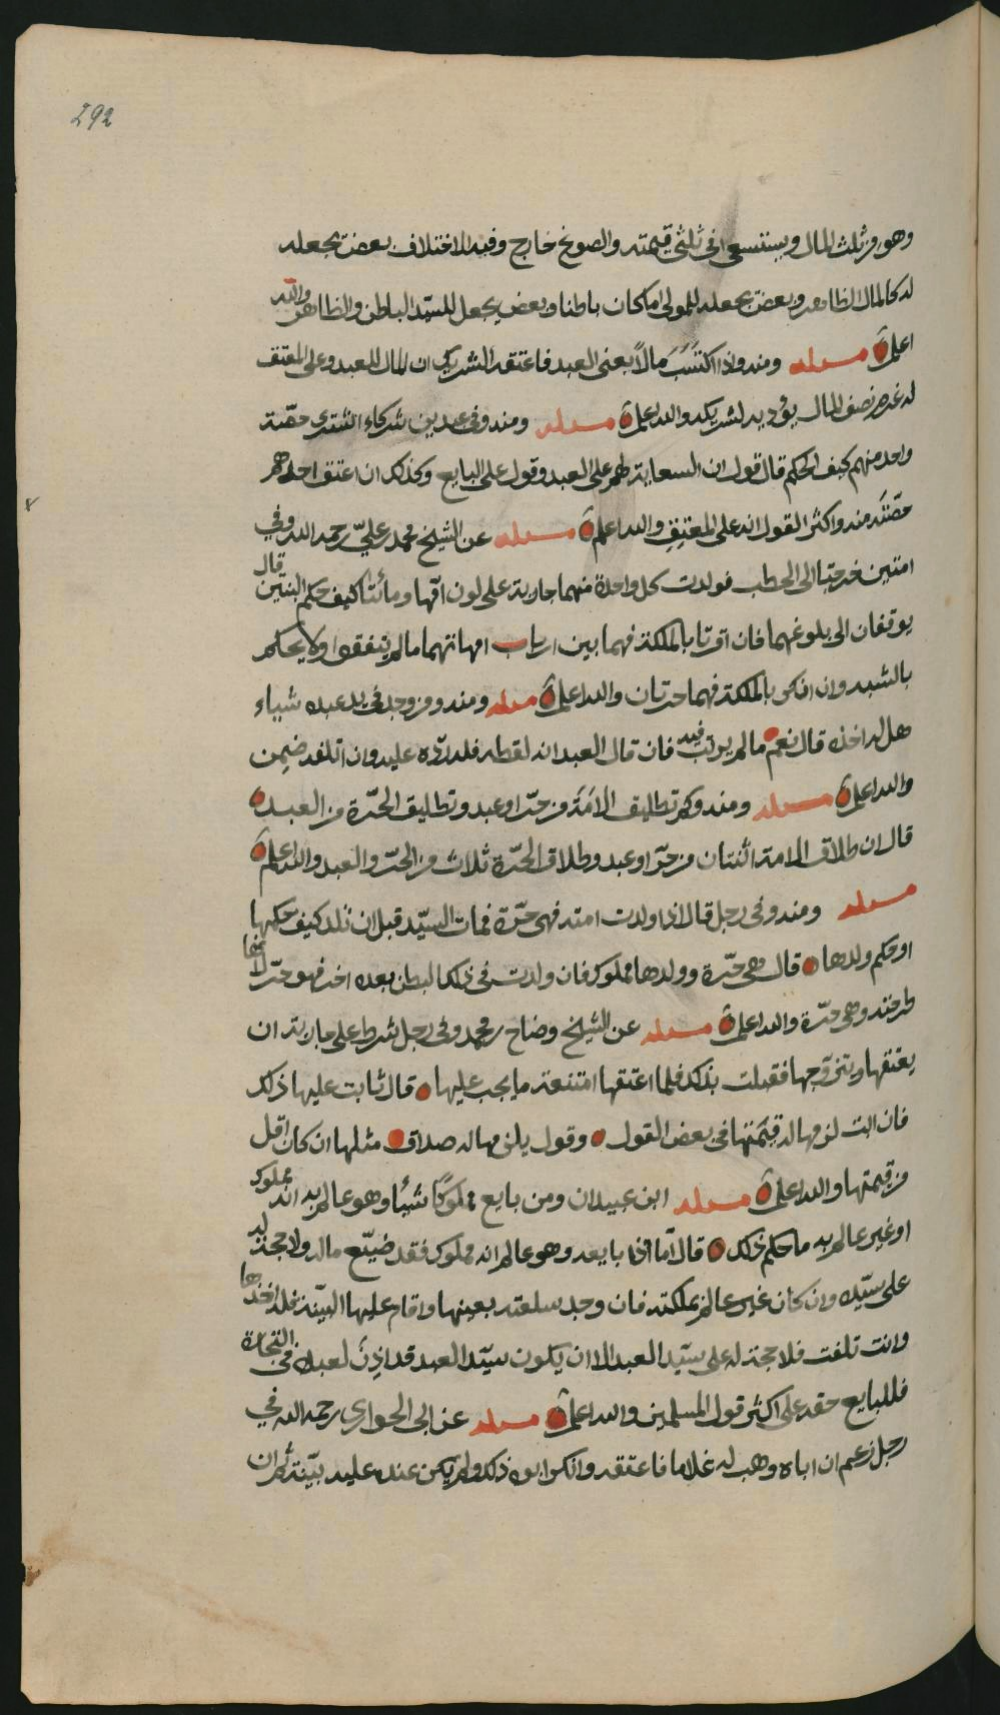 292
وهو من ثلث المال ويستسعى في ثلثي قيمته والصوغ خارج وفيه الاختلاف بعض يجعله
له كالمال الظاهر وبعض يجعله للمولى ما كان باطنا وبعض يجعل للسيد الباطن والظاهر والله
اعلم مسئله ومنه واذا اكتسب مالا يعني العبد فاعتقه الشريك ان المال للعبد وعلى المعتق
له غرم نصف المال يؤديه لشريكه والله اعلم مسئله ومنه وفي عبد بين شركاء اشترى حصّة
واحد منهم كيف الحكم قال قول ان السعاية لهم على العبد وقول على البايع وكذلك ان اعتق احدهم
حصّته منه واكثر القول انه على المعتق والله اعلم مسئله عن الشيخ محمد علي رحمه الله وفي
امتين خرجتا الى الحطب فولدت كل واحدة منهما جارية على لون امها وماتتا كيف حكم البنتين قال
يوقفان الى بلوغهما فان اقرتا بالملكة فهما بين ارباب امهاتهما ما لم يتفقوا ولا يحكم
بالشبه وان انكرتا بالملكة فهما حرتان والله اعلم مسئله ومنه ومن وجد في يد عبده شياء
هل له اخذه قال نعم ما لم يرتب فيه فان قال العبد انه لقطه فله ردّه عليه وان اتلفه ضمن
والله اعلم مسئله ومنه وكم تطليق الامَة من حرّ او عبد وتطليق الحرّة من العبد
قال ان طلاق الامة اثنتان من حرّ او عبد وطلاق الحرّة ثلاث من الحرّ والعبد والله اعلم
مسئله ومنه وفي رجل قال اذا ولدت امته فهي حرّة فمات السيّد قبل ان تلد كيف حكمها
او حكم ولدها قال هي حرّة وولدها مملوك فان ولدت في ذلك البطن بعده اخر فهو حرّ لانها
طرحته وهي حرّة والله اعلم مسئله عن الشيخ وضاح بن محمد وفي رجل شرط على جارية ان
يعتقها ويتزوجها فقبلت بذلك فلما اعتقها امتنعت ما يجب عليها قال ثابت عليها ذلك
فان ابت لزمها له قيمتها في بعض القول وقول يلزمها له صداق مثلها ان كان اقل
من قيمتها والله اعلم مسئله ابن عبيدان ومن بايع مملوكًا شيئًا وهو عالم به انه مملوك
او غير عالم به ما حكم ذلك قال امّا اذا بايعه وهو عالم انه مملوك فقد ضيّع ماله ولا حجة له
على سيّده وان كان غير عالم بملكته فان وجد سلعته بعينها واقام عليها البيّنة فله اخذها
وان تلفت فلا حجة له على سيّد العبد الا ان يكون سيّد العبد قد اذِنَ لعبده في التجارة
فللبايع حقه على اكثر قول المسلمين والله اعلم مسئله عن ابي الحواري رحمه الله في
رجل زعم ان اباه وهب له غلاما فاعتقه وانكر ابوه ذلك ولم يكن عنده عليه بيّنة ثم ان